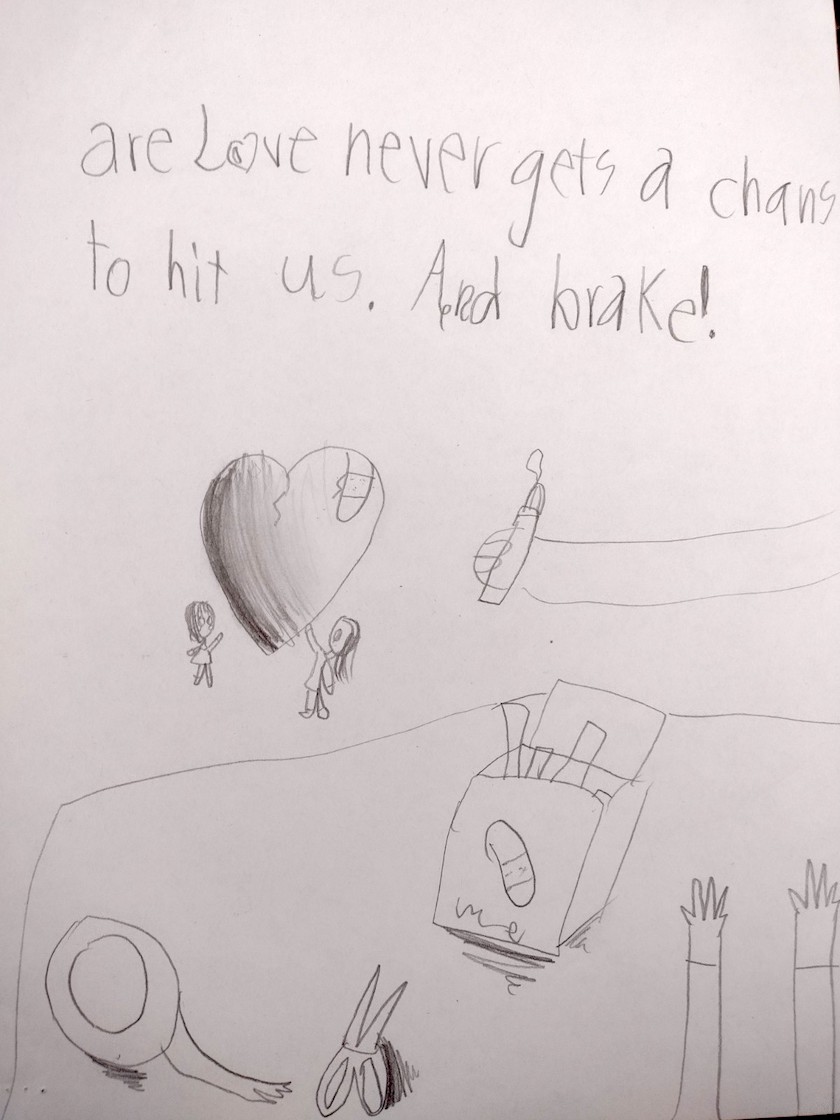 are Love never gets a chans
to hit us. And brake!
me